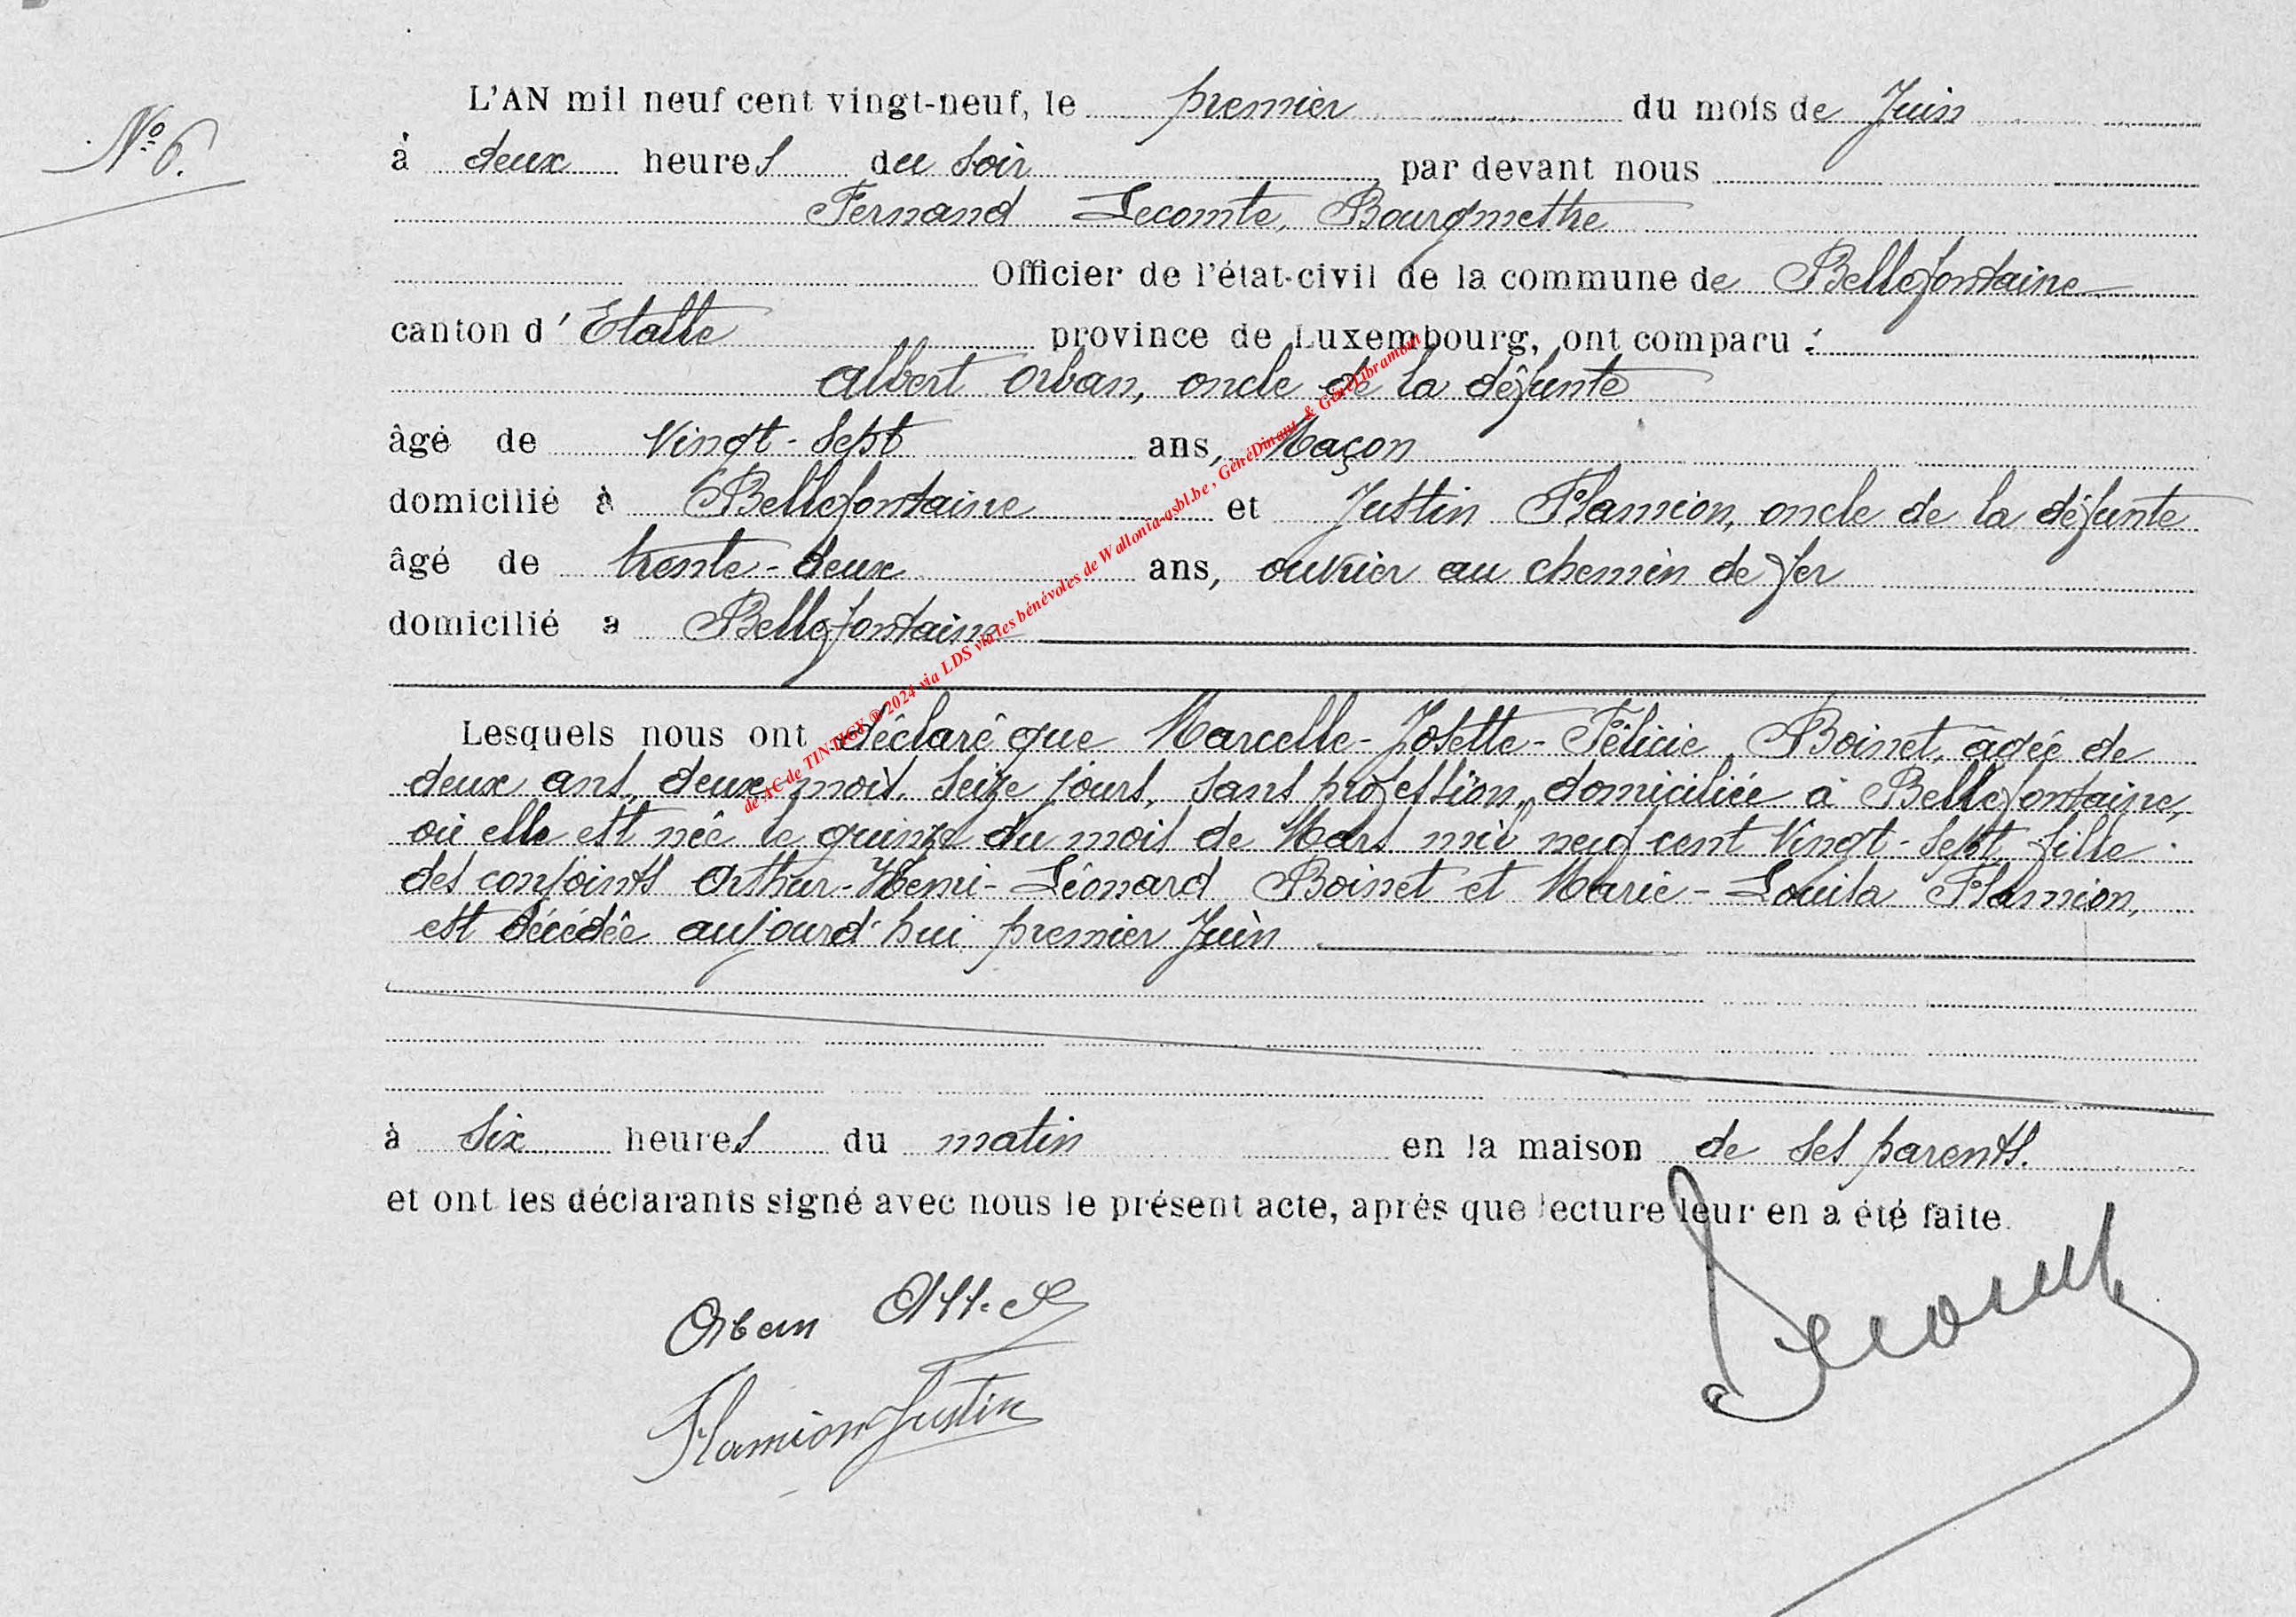 N° 6.
L'AN mil neuf cent vingt-neuf, le premier du mois de Juin
à deux heures du soir, par devant nous
Fernand Lecomte, Bourgmestre
Officier de l'état-civil de la commune de Bellefontaine
canton d'Etalle province de Luxembourg, ont comparu :
Albert Orban, oncle de la défunte
âgé de Vingt-sept ans, Maçon
domicilié à Bellefontaine et Justin Flamion, oncle de la défunte
âgé de trente-deux ans, ouvrier au chemin de fer
domicilié a Bellefontaine
Lesquels nous ont déclaré que Marcelle-Josette-Félicie Boinet, âgée de
deux ans, deux mois, seize jours, sans profession, domiciliée à Bellefontaine,
où elle est née le quinze du mois de Mars mil neuf cent Vingt-sept, fille
des conjoints Arthur-Henri-Léonard Boinet et Marie-Louisa Flamion,
est décédée aujourd'hui premier Juin
à six heures du matin en la maison de ses parents.
et ont les déclarants signé avec nous le présent acte, après que lecture leur en a été faite.
Orban
Flamion Justin
Lecomte
de AC de TINTIGY ® 2024 via LDS via les bénévoles de Wallonia-asbl.be , GénéDinant & GénéLibramont